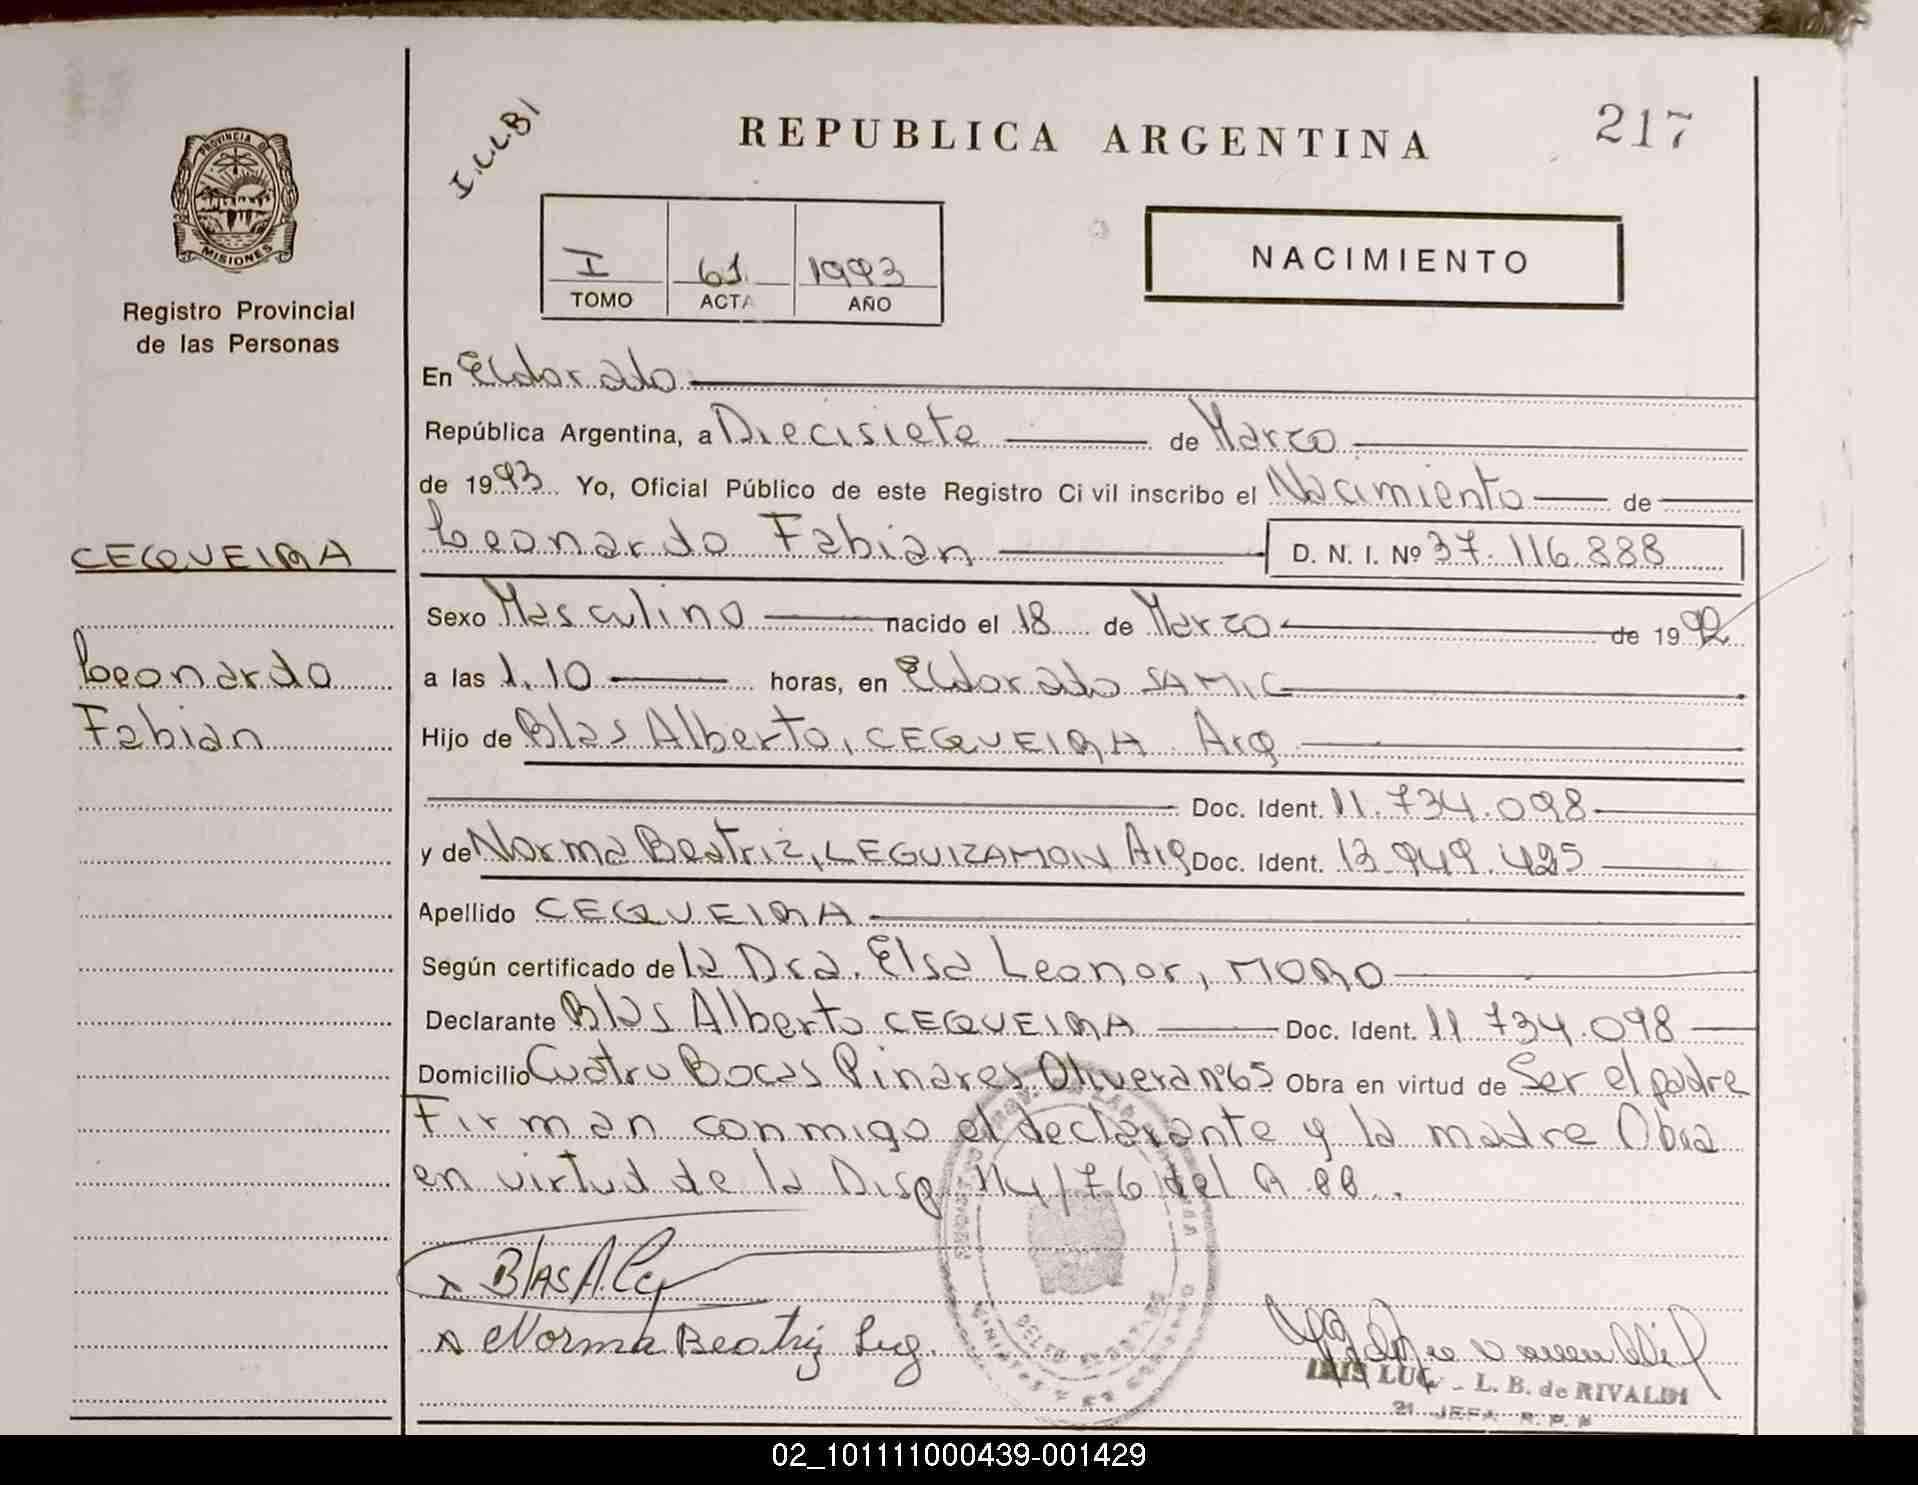 217
I.L.L.B1
REPUBLICA ARGENTINA
PROVINCIA DE
MISIONES
Registro Provincial
de las Personas
I 61 1993
TOMO ACTA AÑO
NACIMIENTO
En Eldorado
República Argentina, a Diecisiete de Marzo
de 1993 Yo, Oficial Público de este Registro Civil inscribo el Nacimiento de
CEQUEIRA
Leonardo Fabian D. N. I. Nº 37.116.888
Sexo Masculino nacido el 18 de Marzo de 1992
Leonardo
a las 1.10 horas, en Eldorado SAMIC
Fabian
Hijo de Blas Alberto, CEQUEIRA Arg
Doc. Ident. 11.734.098
y de Norma Beatriz, LEGUIZAMON Arg Doc. Ident. 13.949.425
Apellido CEQUEIRA
Según certificado de la Dra. Elsa Leonor, MORO
Declarante Blas Alberto CEQUEIRA Doc. Ident. 11.734.098
Domicilio Cuatro Bocas Pinares Olivera nº65 Obra en virtud de Ser el padre
Firman conmigo el declarante y la madre Obra
en virtud de la Disp 114/76 del
Blas A. Ceq
Norma Beatriz Leg.
L. B. de RIVALDI
JEFA R. P. P
02_101111000439-001429